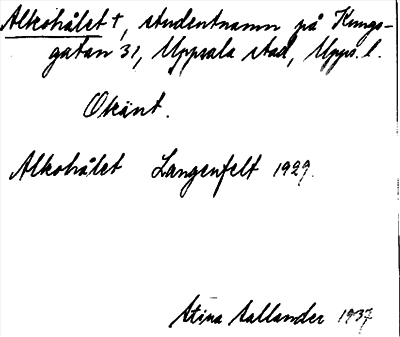 Alkohålet †, studentnamn på Kungs-
gatan 31, Uppsala stad, Upps. l.
Okänt.
Alkohålet Langenfelt 1929.
Stina Sallander 1937